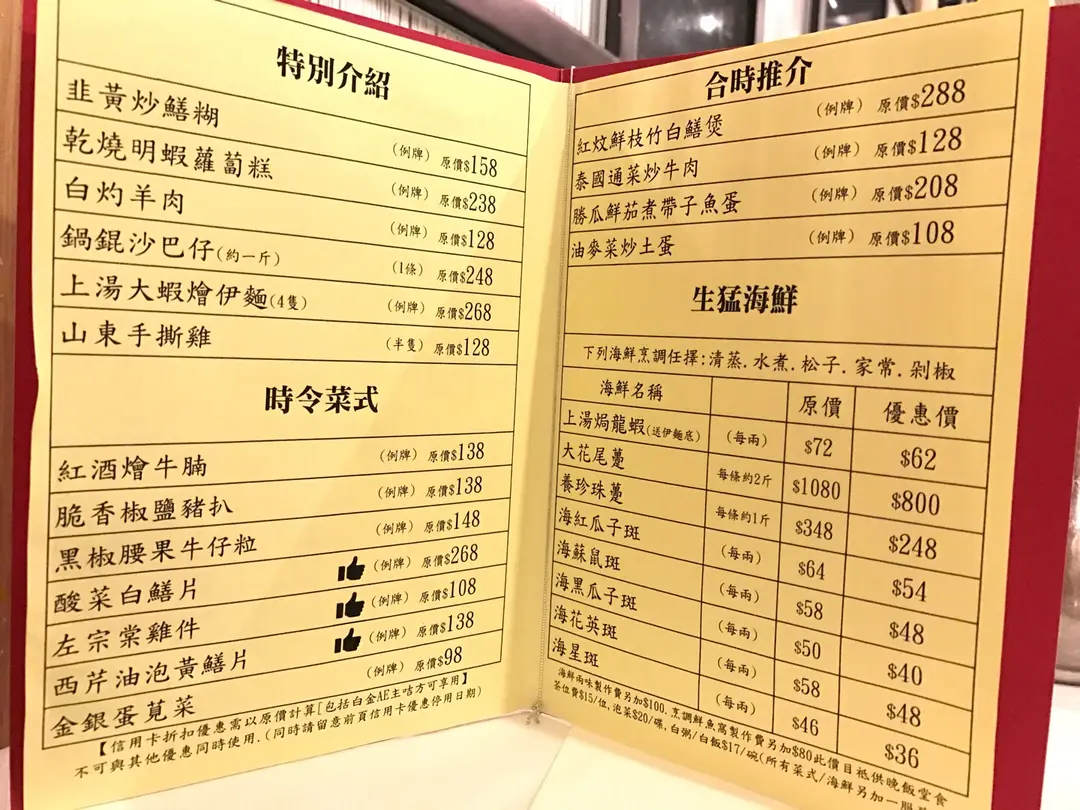 特別介紹
韭黃炒鱔糊 (例牌) 原價$158
乾燒明蝦蘿蔔糕 (例牌) 原價$238
白灼羊肉 (例牌) 原價$128
鍋錕沙巴仔(約一斤) (1條) 原價$248
上湯大蝦燴伊麵(4隻) (例牌) 原價$268
山東手撕雞 (半隻) 原價$128
時令菜式
紅酒燴牛腩 (例牌) 原價$138
脆香椒鹽豬扒 (例牌) 原價$138
黑椒腰果牛仔粒 (例牌) 原價$148
酸菜白鱔片 (例牌) 原價$268
左宗棠雞件 (例牌) 原價$108
西芹油泡黃鱔片 (例牌) 原價$138
金銀蛋莧菜 (例牌) 原價$98
【信用卡折扣優惠需以原價計算[包括白金AE主咭方可享用】
不可與其他優惠同時使用.(同時請留意前頁信用卡優惠停用日期)
合時推介
紅炆鮮枝竹白鱔煲 (例牌) 原價$288
泰國通菜炒牛肉 (例牌) 原價$128
勝瓜鮮茄煮帶子魚蛋 (例牌) 原價$208
油麥菜炒土蛋 (例牌) 原價$108
生猛海鮮
下列海鮮烹調任擇:清蒸.水煮.松子.家常.剁椒
海鮮名稱 原價 優惠價
上湯焗龍蝦(送伊麵底) (每兩) $72 $62
大花尾躉 每條約2斤 $1080 $800
養珍珠躉 每條約1斤 $348 $248
海紅瓜子斑 (每兩) $64 $54
海蘇鼠斑 (每兩) $58 $48
海黑瓜子斑 (每兩) $50 $40
海花英斑 (每兩) $58 $48
海星斑 (每兩) $46 $36
海鮮兩味製作費另加$100.烹調鮮魚窩製作費另加$80此價目祗供晚飯堂食
茶位費$15/位,泡菜$20/碟,白粥/白飯$17/碗(所有菜式/海鮮另加一服